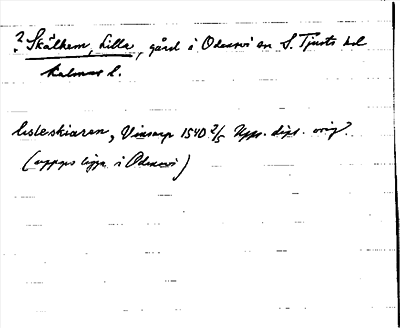 ? Skälhem, Lilla, gård i Odensvi sn S. Tjusts hd
Kalmar l.
lisleskiaren, Vinsarp 1540 2/5 Upps. dipl. orig?
(uppges ligga i Odensvi)